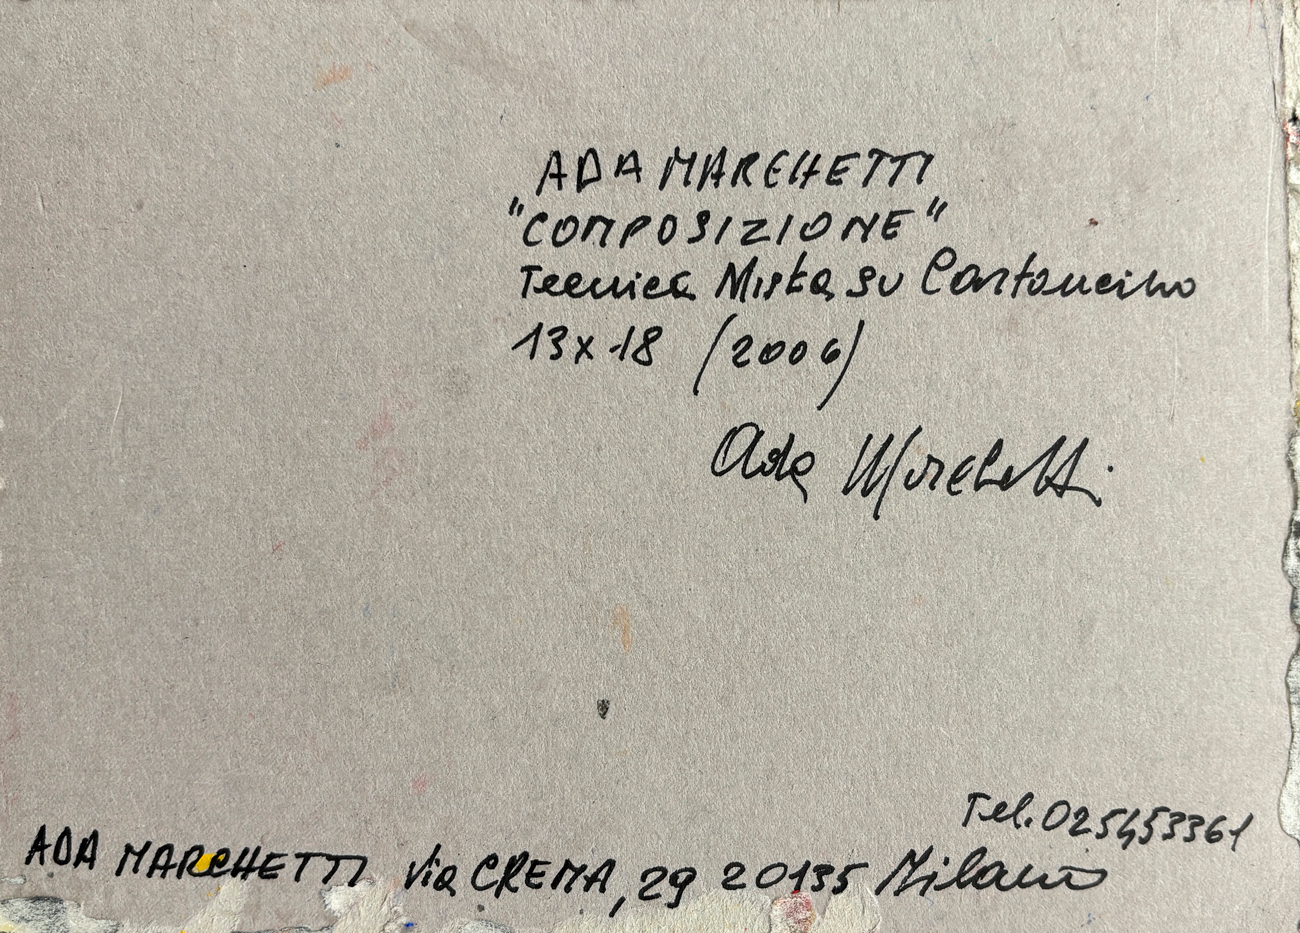 ADA MARCHETTI
"COMPOSIZIONE"
Tecnica Mista su Cartoncino
13x18 (2006)
Ada Marchetti
Tel. 025453361
ADA MARCHETTI Via CREMA, 29 20135 Milano